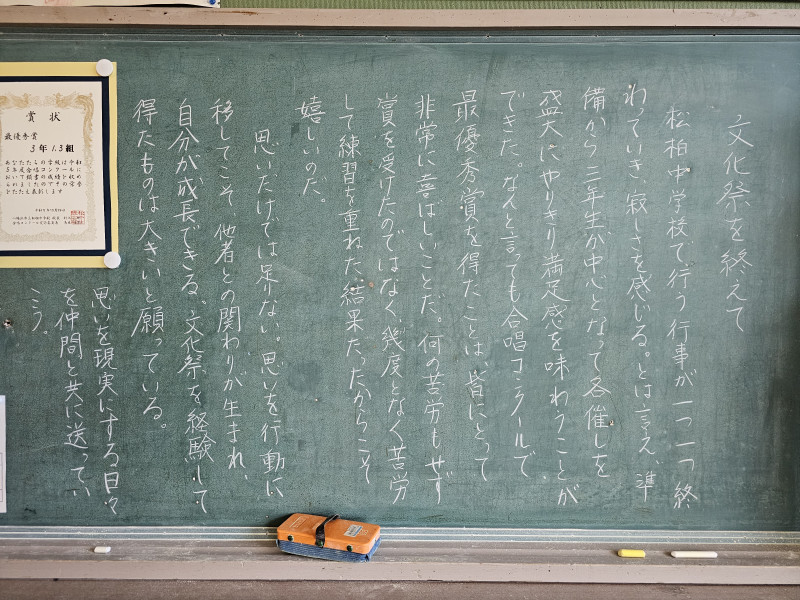 文化祭を終えて
松柏中学校で行う行事が一つ一つ終
わっていき、寂しさを感じる。とは言え、準
備から三年生が中心となって各催しを
盛大にやりきり満足感を味わうことが
できた。なんと言っても合唱コンクールで
最優秀賞を得たことは、皆にとって
非常に喜ばしいことだ。何の苦労もせず
賞を受けたのではなく、幾度となく苦労
して練習を重ねた結果だったからこそ
嬉しいのだ。
思いだけでは足りない。思いを行動に
移してこそ、他者との関わりが生まれ、
自分が成長できる。文化祭を経験して
得たものは大きいと願っている。
思いを現実にする日々
を仲間と共に送ってい
こう。
賞状
最優秀賞
3年1.3組